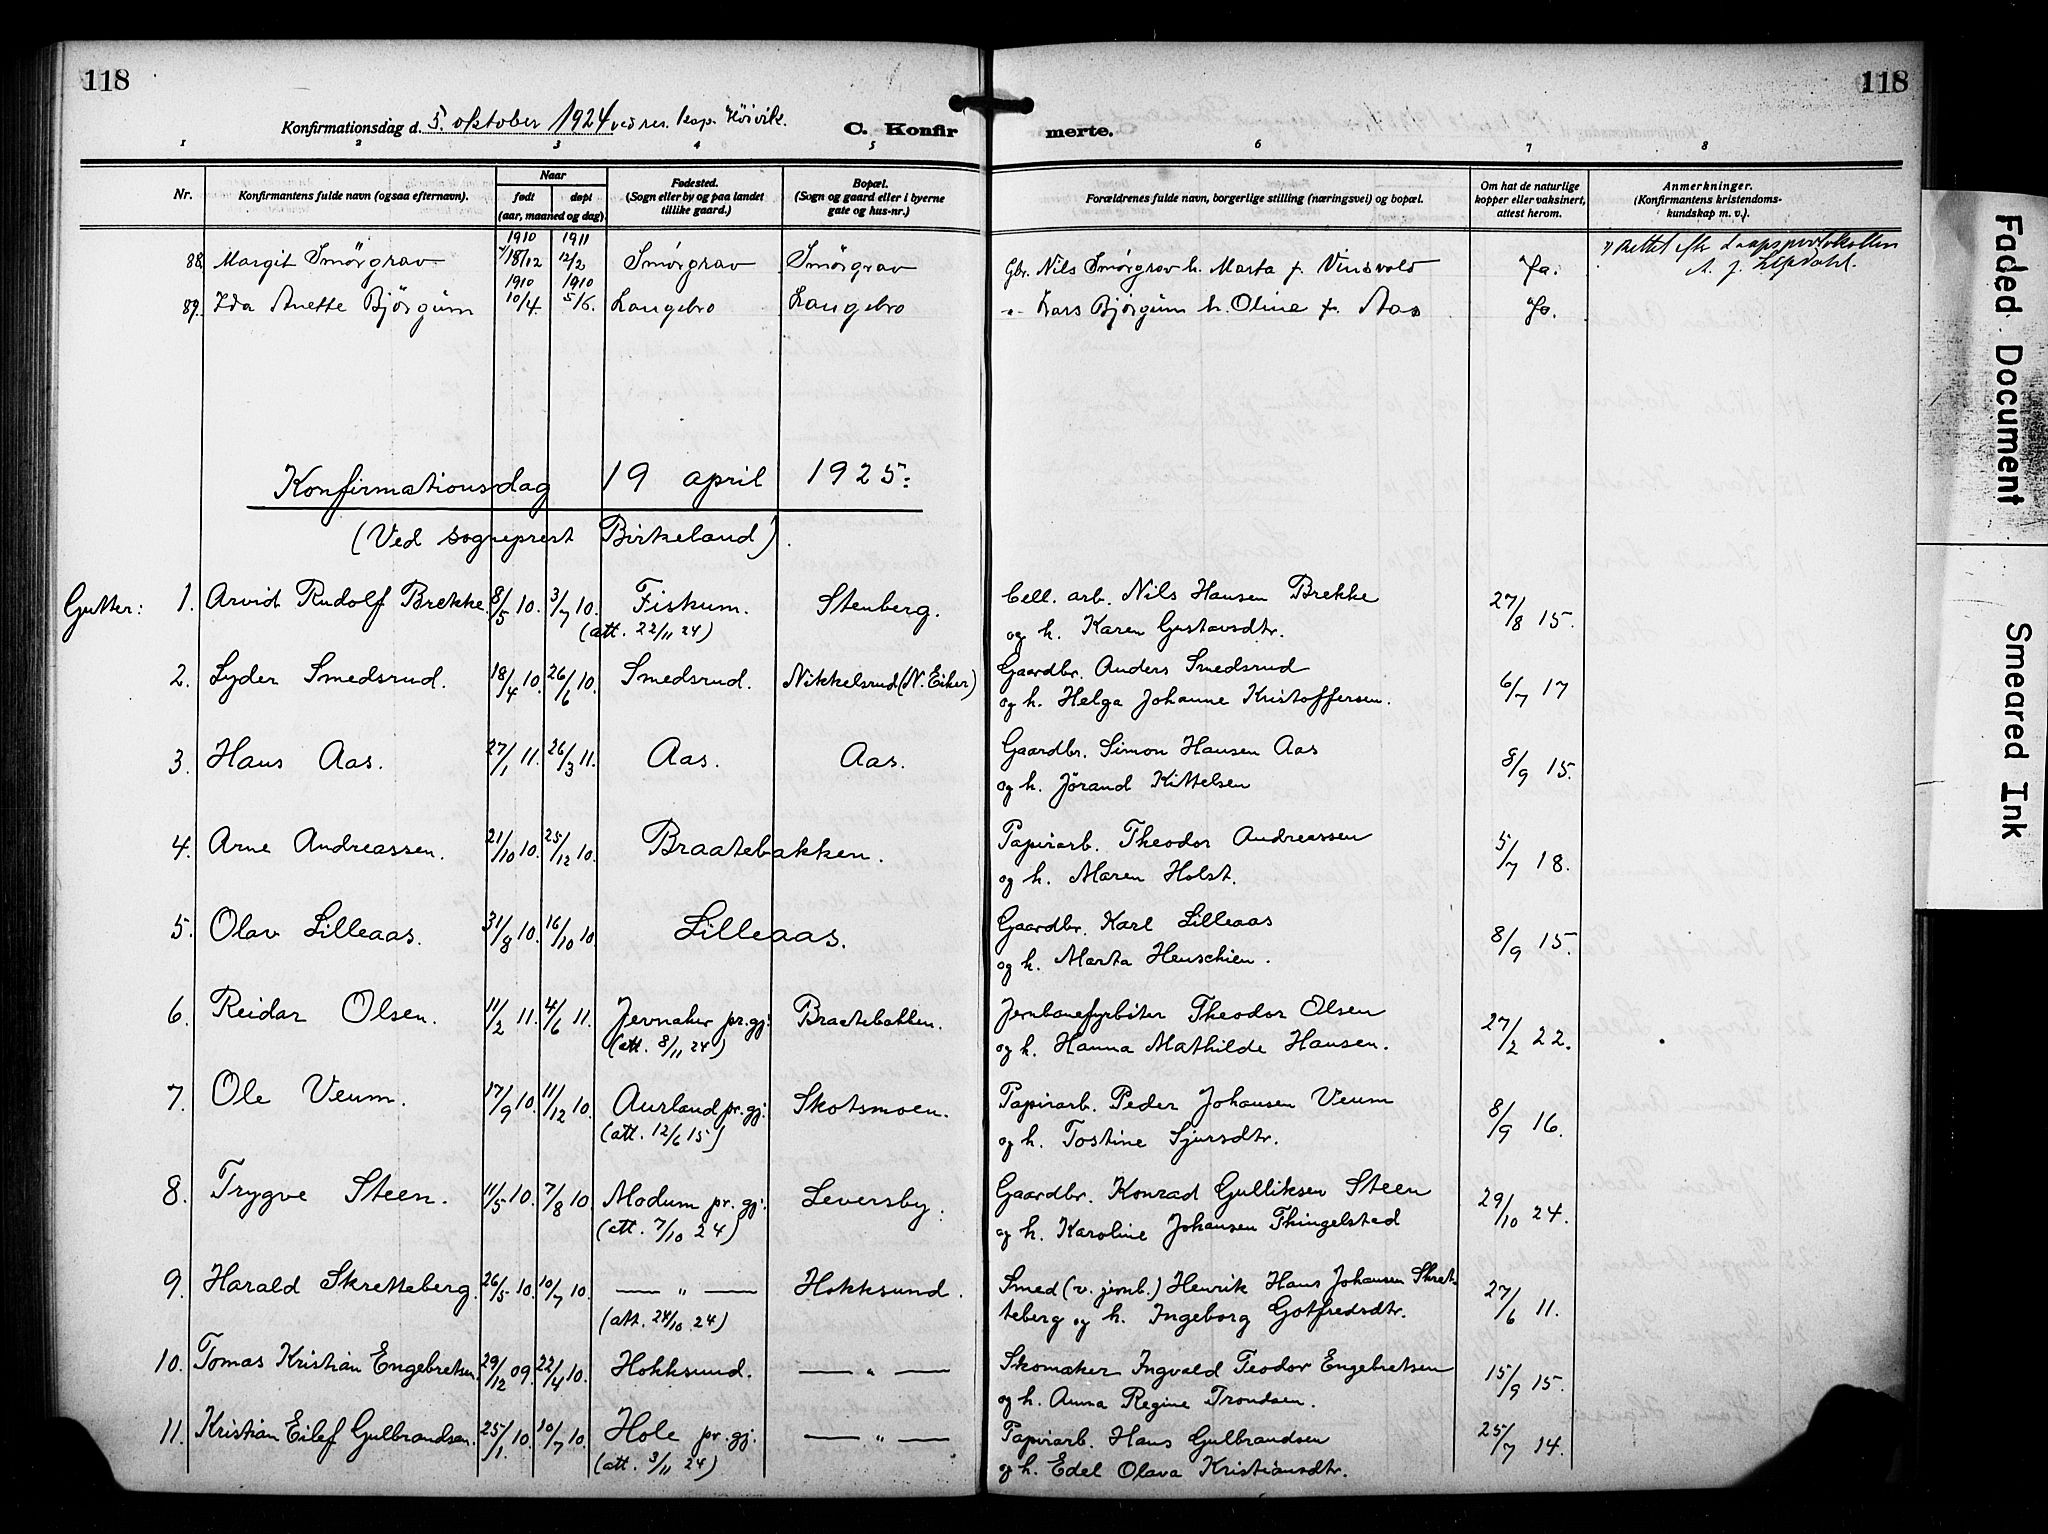 118
118
Konfirmationsdag d. 5. oktober 1924 ved res. kap. Höivik.
C. Konfir merte.
1 2 3 4 5 6 7 8
Nr.
Konfirmantens fulde navn (ogsaa efternavn).
Naar
født døpt
(aar, maaned og dag).
Fødested.
(Sogn eller by og paa landet
tillike gaard.)
Bopæl.
(Sogn og gaard eller i byerne
gate og hus-nr.)
Forældrenes fulde navn, borgerlige stilling (næringsvei) og bopæl.
Om hat de naturlige
kopper eller vaksinert,
attest herom.
Anmerkninger.
(Konfirmantens kristendoms-
kundskap m. v.).
1910 1911
88. Margit Smørgrav 18/12 12/2 Smørgrav Smørgrav Gbr. Nils Smørgrav h. Marta f. Vinsvold Ja.
1) Rettet efter daapsprotokollen
1910 1910
89. Ida Anette Bjørgum 10/4. 5/6. Langebro Langebro " Lars Bjørgum h. Oline f. Aas Ja.
Konfirmationsdag 19 april 1925.
(Ved sogneprest Birkeland).
Gutter: 1. Arvid Rudolf Brekke. 8/5 10. 3/7 10. Fiskum. Stenberg. Cell. arb. Nils Hansen Brekke 27/8 15.
(att. 22/11 24) og h. Karen Gustavsdtr.
2. Lyder Smedsrud. 18/4 10. 26/6 10. Smedsrud. Nikkelsrud (N. Eiker) Gaardbr. Anders Smedsrud 6/7 17
og h. Helga Johanne Kristoffersen.
3. Hans Aas. 27/1 11. 26/3 11. Aas. Aas. Gaardbr. Simon Hansen Aas 8/9 15.
og h. Jörand Kittelsen
4. Arne Andreassen. 21/10 10. 25/12 10. Braatebakken. Papirarb. Theodor Andreassen 5/7 18.
og h. Maren Holst.
5. Olav Lilleaas. 31/8 10. 16/10 10. Lilleaas. Gaardbr. Karl Lilleaas 8/9 15.
og h. Marta Henschien.
6. Reidar Olsen. 11/2 11. 4/6 11. Jevnaker pr.gj. Braatebakken. Jernbanefyrböter Theodor Olsen 27/2 22.
(att. 8/11 24) og h. Hanna Mathilde Hansen.
7. Ole Veum. 17/9 10. 11/12 10. Aurland pr.gj. Skotsmoen. Papirarb. Peder Johansen Veum 8/9 16.
(att. 12/6 15) og h. Tostine Sjursdtr.
8. Trygve Steen. 11/5 10. 7/8 10. Modum pr.gj. Leversby. Gaardbr. Konrad Gulliksen Steen 29/10 24.
(att. 7/10 24) og h. Karoline Johansen Thingelstad
9. Harald Skretteberg. 26/5 10. 10/7 10. — " — Hokksund. Smed (v. jernb.) Henrik Hans Johansen Skret- 27/6 11.
(att. 24/10 24) teberg og h. Ingeborg Gotfredsdtr.
10. Tomas Kristian Engebretsen. 29/12 09. 22/4 10. Hokksund. — " — Skomaker Ingvald Teodor Engebretsen 15/9 15.
og h. Anna Regine Trondsen.
11. Kristian Eilef Gulbrandsen. 25/1 10. 10/7 10. Hole pr.gj. — " — Papirarb. Hans Gulbrandsen 25/7 14.
(att. 3/11 24) og h. Edel Olava Kristiansdtr.
Faded Document
Smeared Ink